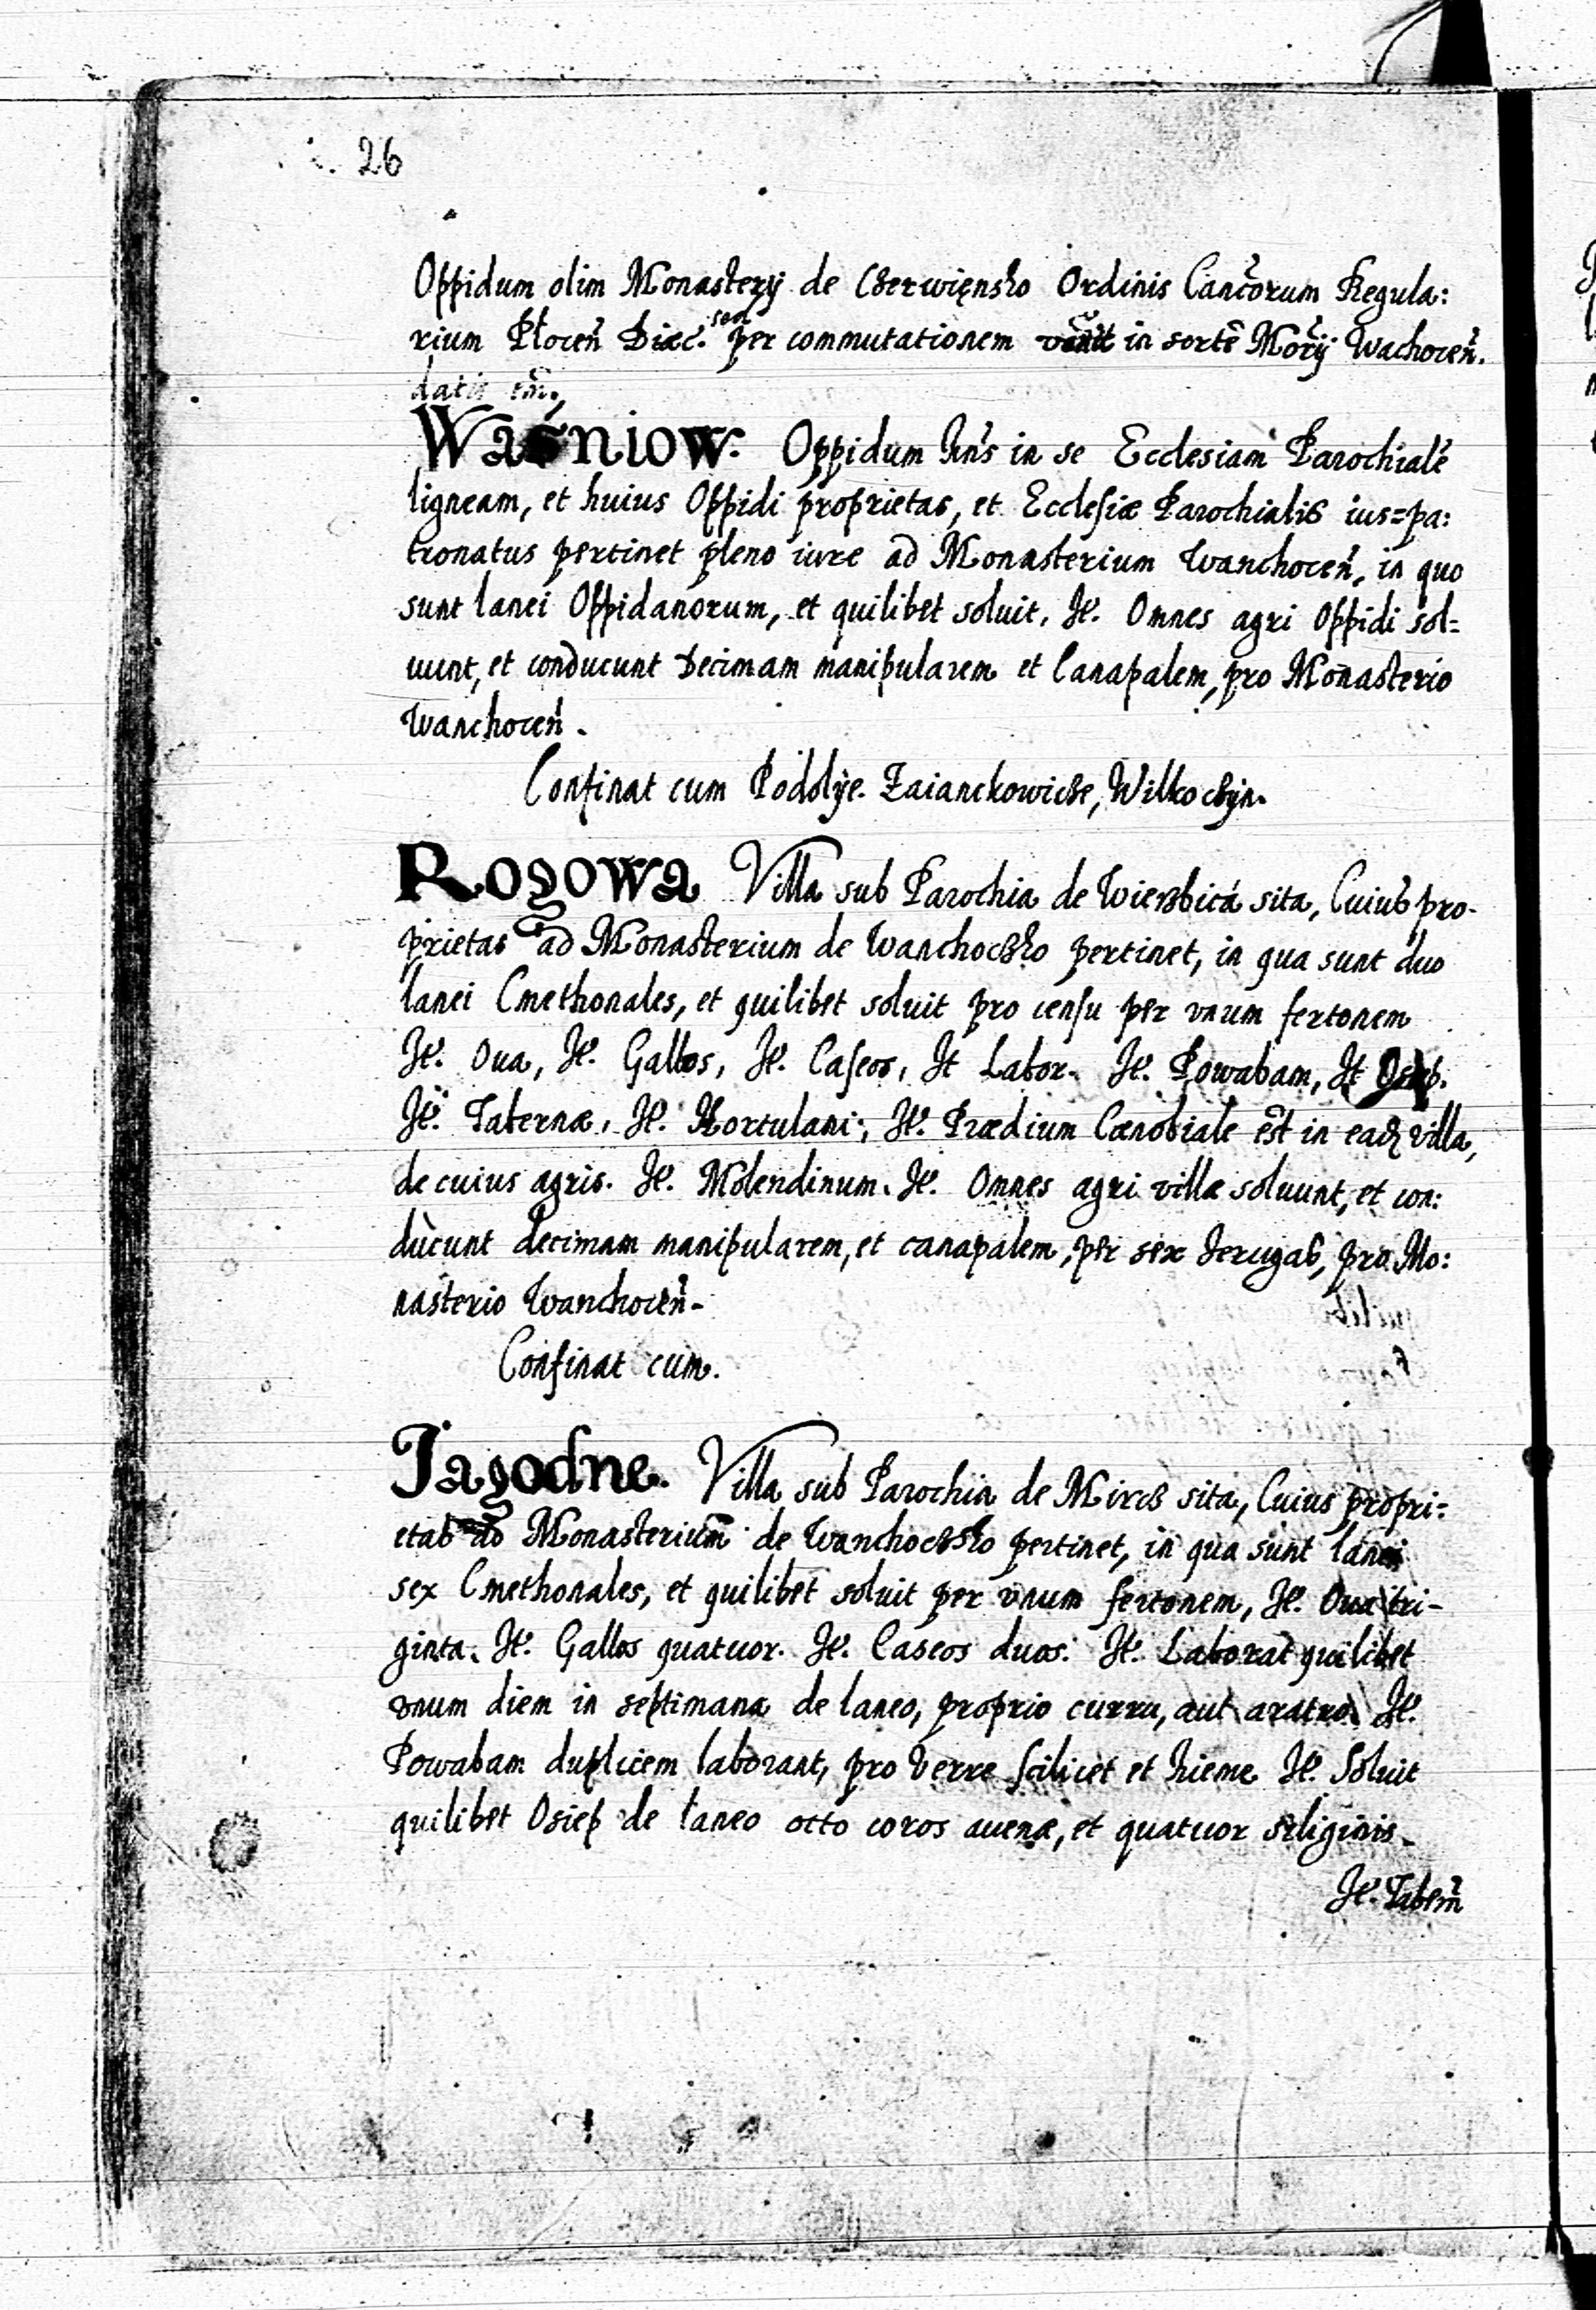 26
Oppidum olim Monastery de Czerwięnsko Ordinis Cancorum Regula:
rium Płocen Diæc. sed per commutationem venit in sorte Morij Wachocen.
datis
Wasniow. Oppidum hns in se Ecclesiam Parochiale
ligneam, et huius Oppidi proprietas, et Ecclesiæ Parochialis ius=pa:
tronatus pertinet pleno iure ad Monasterium Wanchocen, in quo
sunt lanei Oppidanorum, et quilibet soluit, It. Omnes agri Oppidi sol=
uunt, et conducunt Decimam manipularem et Canapalem, pro Monasterio
Wanchocen.
Confinat cum Podolye. Zaianckowicze, Wilkoczyn.
Rogowa Villa sub Parochia de Wierzbica sita, Cuius pro-
prietas ad Monasterium de Wanchoczko pertinet, in qua sunt duo
lanei Cmethonales, et quilibet soluit pro censu per vnum fertonem
It. Oua, It. Gallos, It. Caseos, It Labor. It. Powabam, It Osep.
It. Tabernæ, It. Hortulani, It. Prædium Cœnobiale est in eadz villa,
de cuius agris. It. Molendinum. It. Omnes agri villæ soluunt, et con:
ducunt decimam manipularem, et canapalem, per sex Jerugas, pro Mo:
nasterio Wanchocen-
Confinat cum.
Jagodne. Villa sub Parochia de Mircz sita, Cuius propri=
etas ad Monasterium de Wanchoczsko pertinet, in qua sunt lanei
sex Cmethonales, et quilibet soluit per vnum fertonem, It. Oua tri-
ginta. It. Gallos quatuor. It. Caseos duos. It. Laborat quilibet
vnum diem in septimana de laneo, proprio curru, aut aratro It.
Powabam duplicem laborant, pro Verre scilicet et hieme It. Soluit
quilibet Osiep de laneo octo coros auenæ, et quatuor seliginis.
It. Tabern